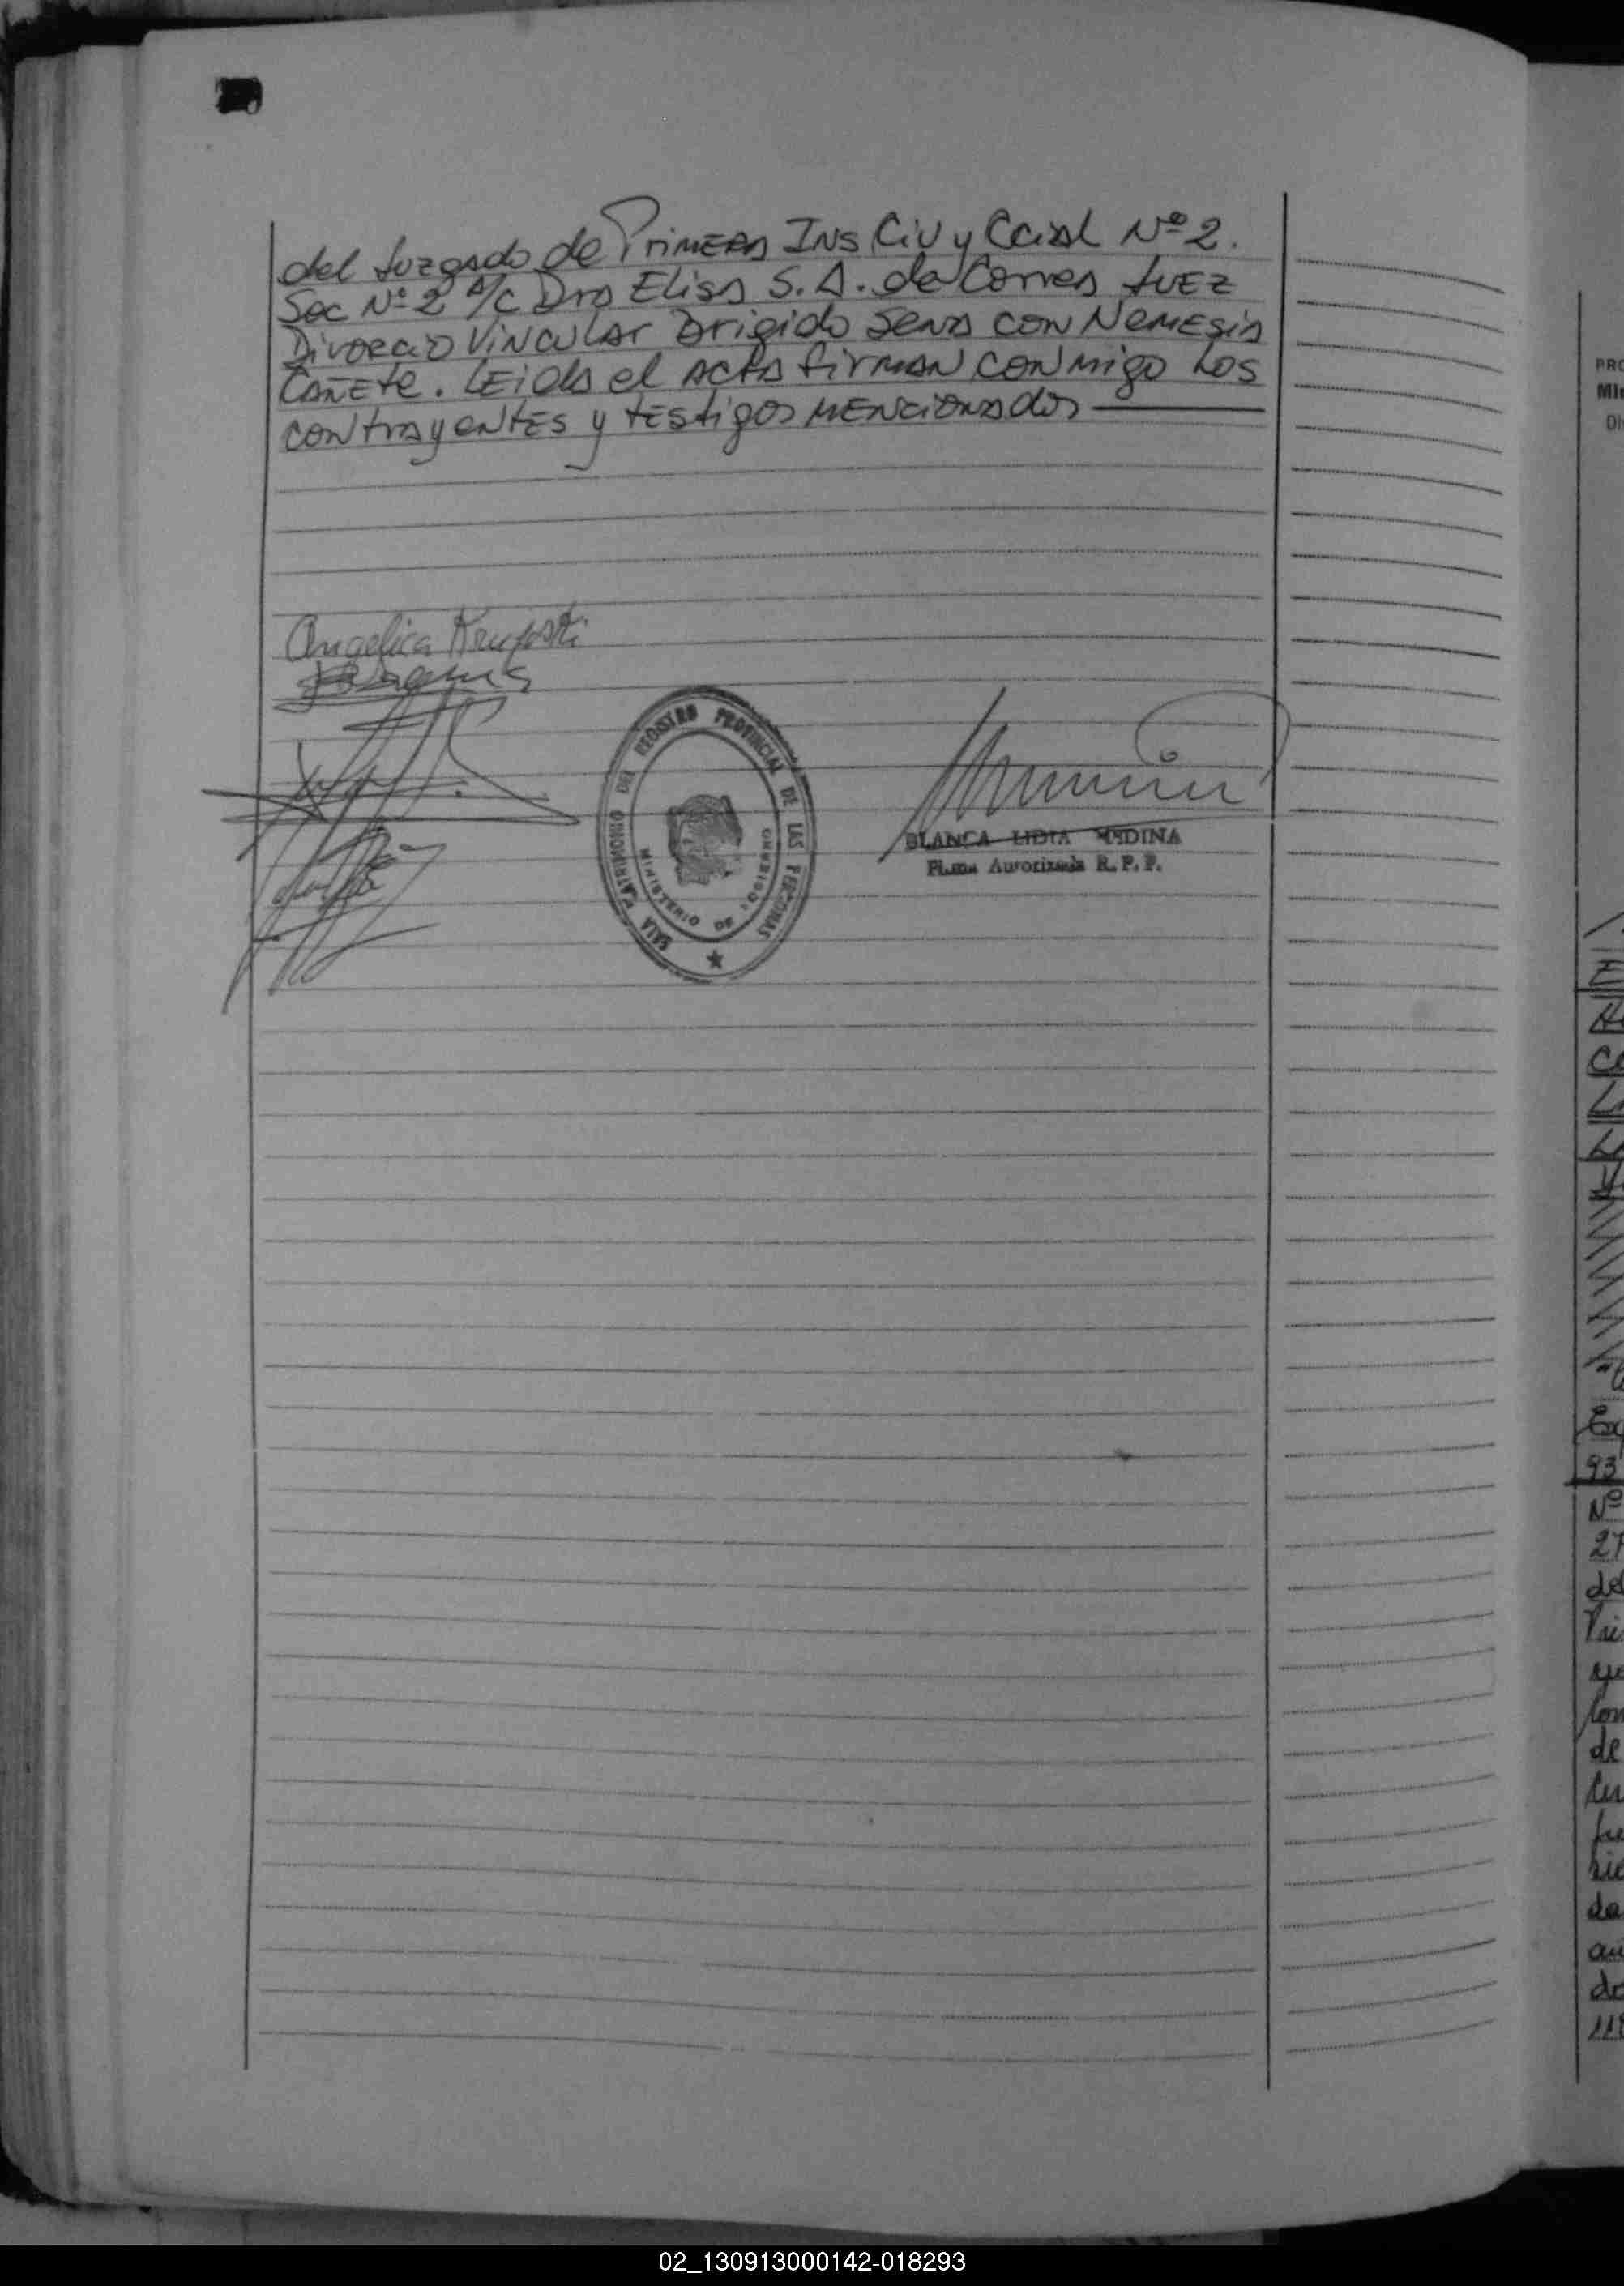 del Juzgado de Primera Ins Civ y Ccial Nº 2.
Sec Nº 2 A/C Dra Elisa S. A. de Correa Juez
Divorcio Vincular Brigido Sena con Nemesia
Cañete. Leida el acta firman conmigo los
contrayentes y testigos mencionados
Angelica
SALA MATRIMONIO DEL REGISTRO PROVINCIAL DE LAS PERSONAS
MINISTERIO DE GOBIERNO
BLANCA LIDIA MEDINA
Firma Autorizada R. P. P.
PRO
MI
DI
93
Nº
27
del
de
da
02_130913000142-018293